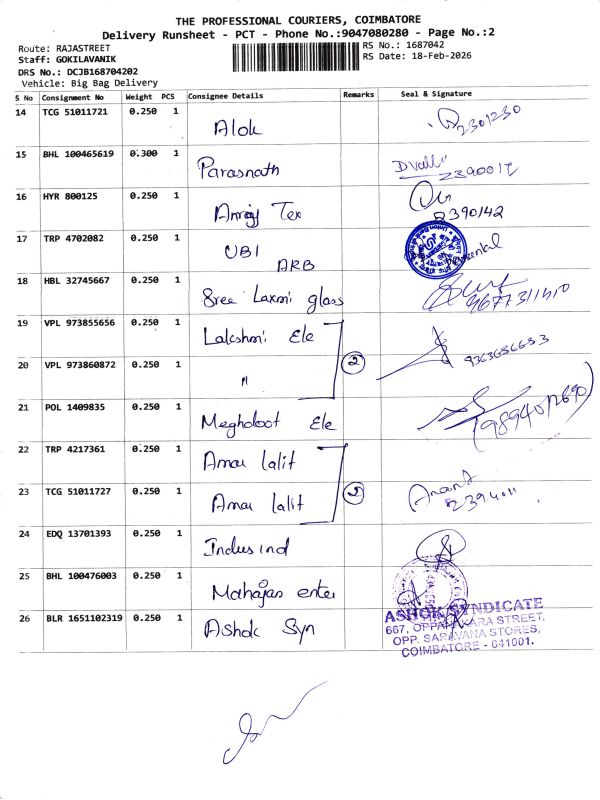 THE PROFESSIONAL COURIERS, COIMBATORE
Delivery Runsheet - PCT - Phone No.:9047080280 - Page No.:2
Route: RAJASTREET
RS No.: 1687042
Staff: GOKILAVANIK
RS Date: 18-Feb-2026
DRS No.: DCJB168704202
Vehicle: Big Bag Delivery
S No Consignment No Weight PCS Consignee Details Remarks Seal & Signature
14 TCG 51011721 0.250 1 Alok 2301230
15 BHL 100465619 0.300 1 Parasnath
16 HYR 800125 0.250 1 Tex 2390142
17 TRP 4702082 0.250 1 UBI
ARB
18 HBL 32745667 0.250 1 Sree Laxmi glass
19 VPL 973855656 0.250 1 Lakshmi Ele
20 VPL 973860872 0.250 1 " 2
21 POL 1409835 0.250 1 Meghdoot Ele
22 TRP 4217361 0.250 1 Amar lalit
23 TCG 51011727 0.250 1 Amar lalit 2 Anant
24 EDQ 13701393 0.250 1 Indusind
25 BHL 100476003 0.250 1 Mahajan enter
26 BLR 1651102319 0.250 1 Ashok Syn
ASHOK SYNDICATE
667, OPPANAKARA STREET,
OPP. SARAVANA STORES,
COIMBATORE - 641001.